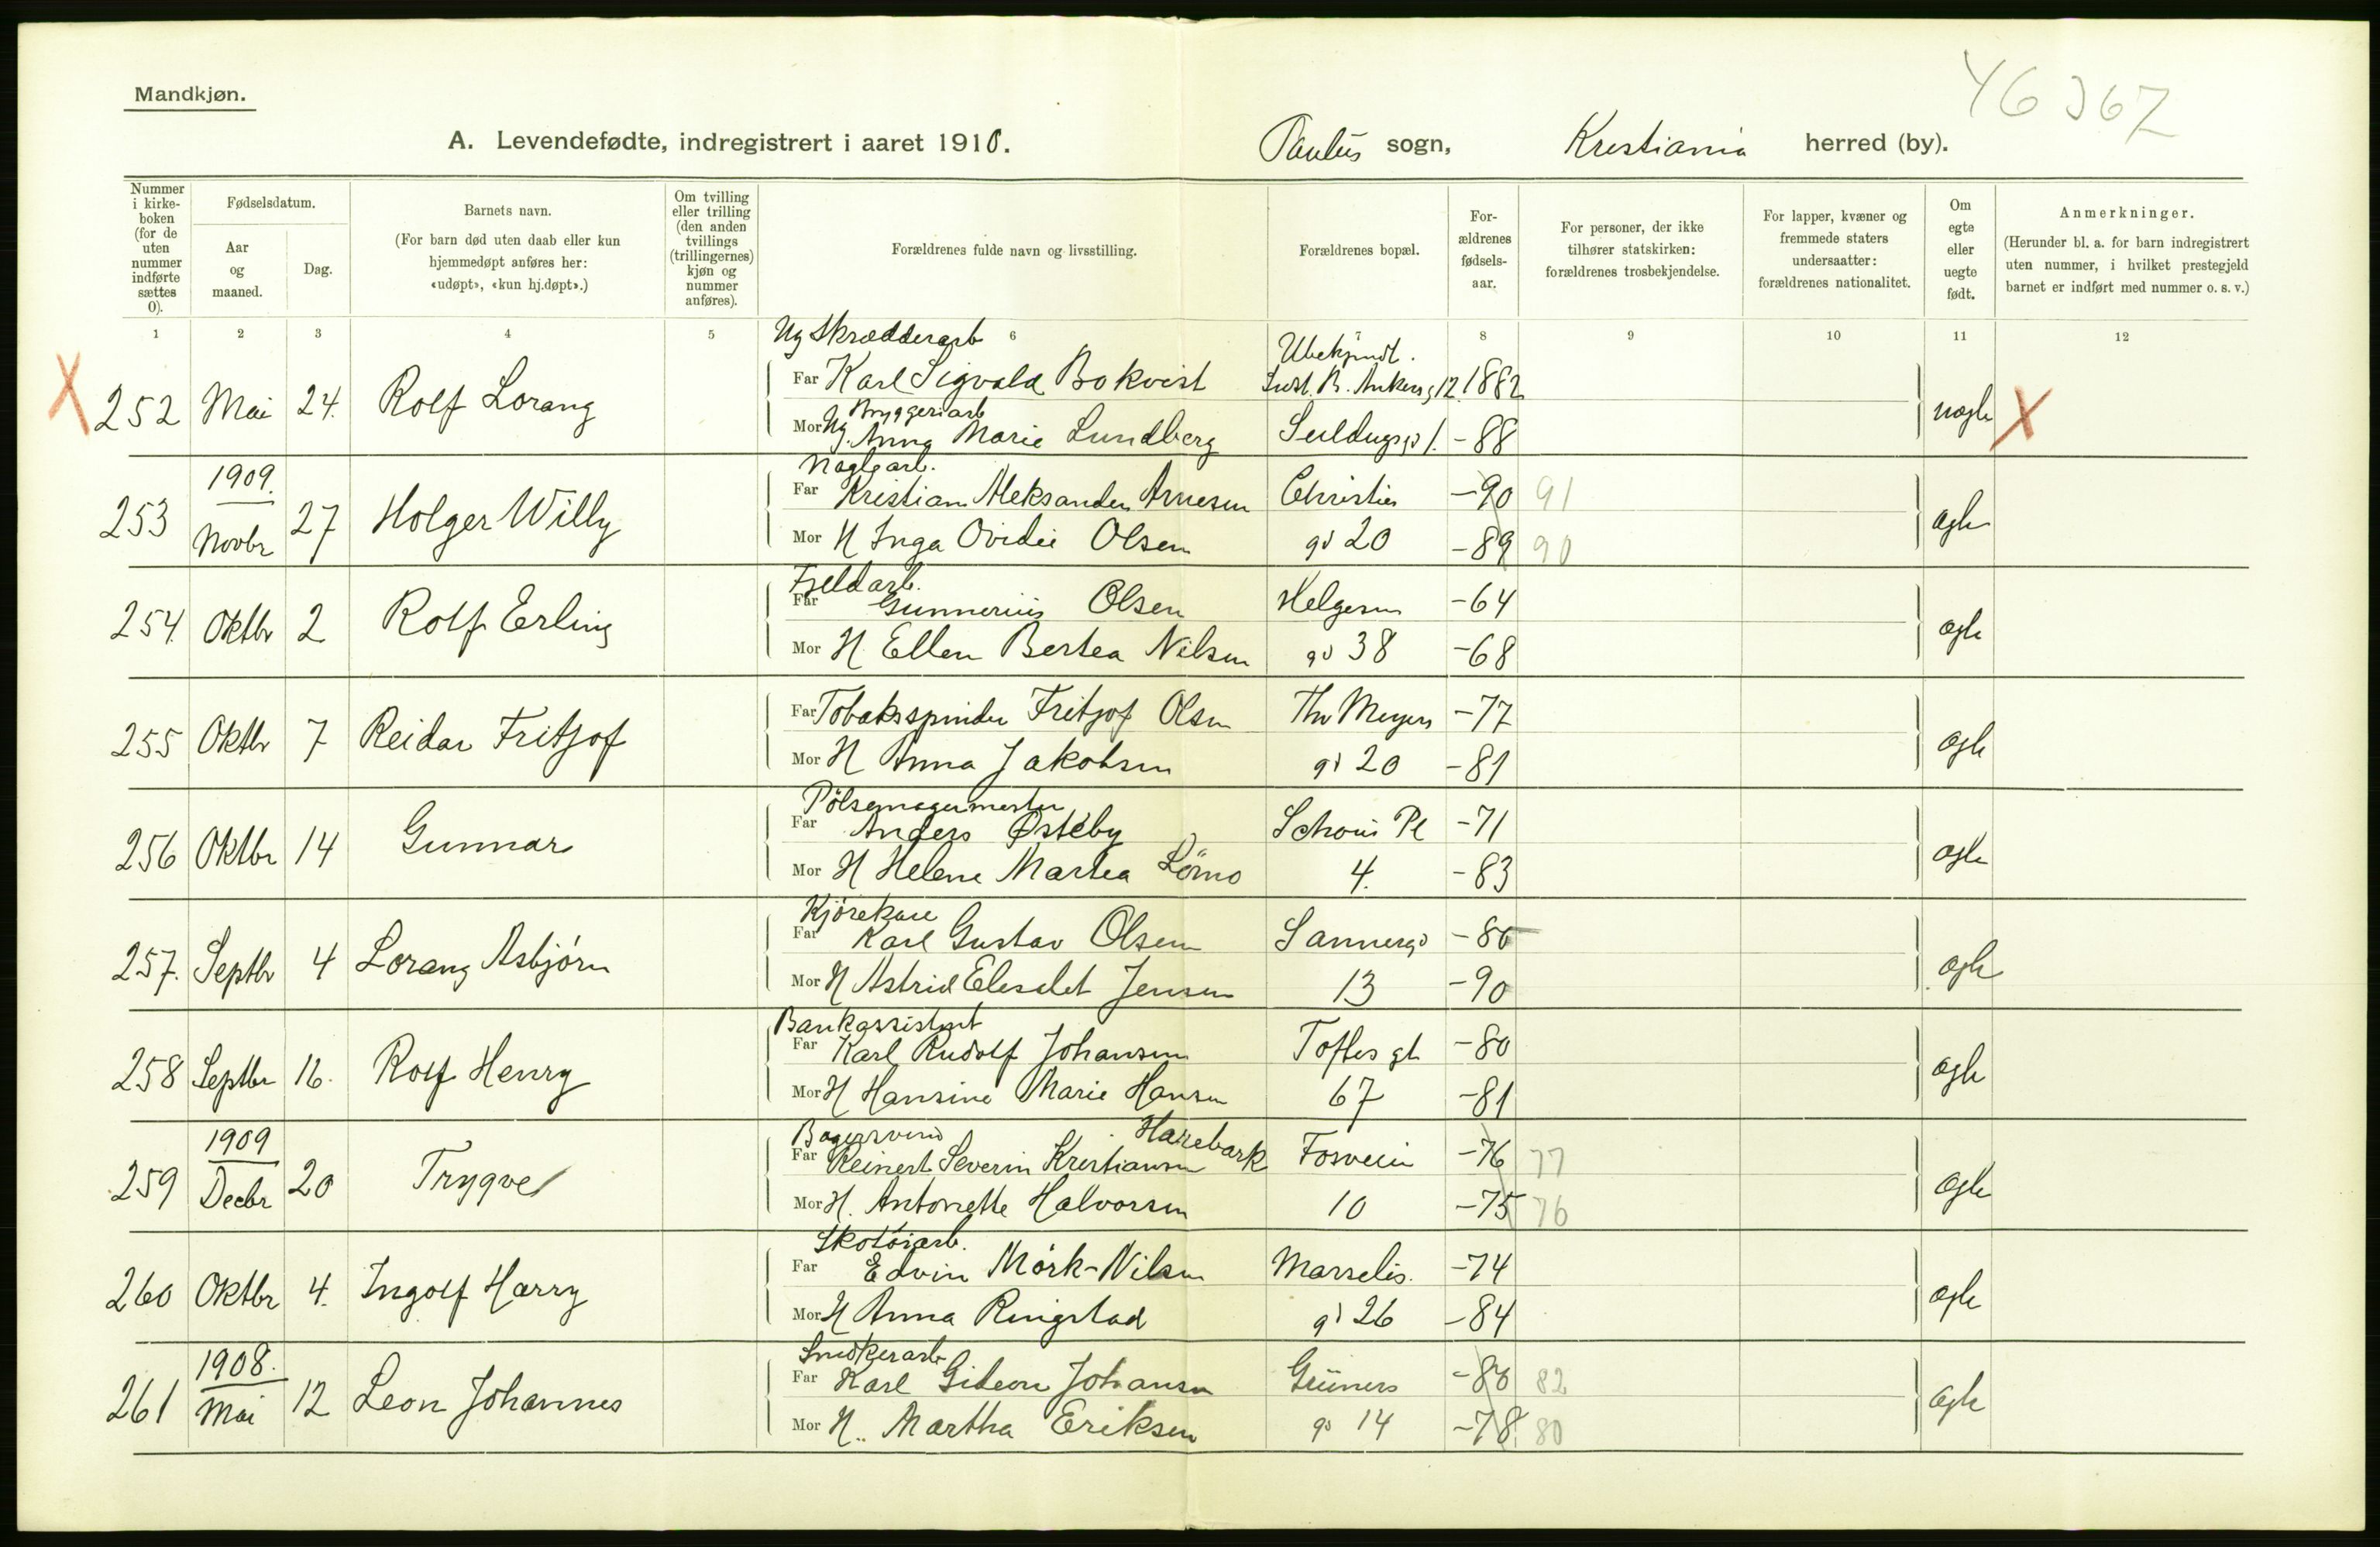 46367
Mandkjøn.
A. Levendefødte, indregistrert i aaret 1910. Paulus sogn, Kristiania herred (by).
Nummer i kirkeboken (for de uten nummer indførte sættes 0).
Fødselsdatum.
Aar og maaned.
Dag.
Barnets navn.
(For barn død uten daab eller kun hjemmedøpt anføres her: «udøpt», «kun hj.døpt».)
Om tvilling eller trilling (den anden tvillings (trillingernes) kjøn og nummer anføres).
Forældrenes fulde navn og livsstilling.
Forældrenes bopæl.
For-ældrenes fødsels-aar.
For personer, der ikke tilhører statskirken: forældrenes trosbekjendelse.
For lapper, kvæner og fremmede staters undersaatter: forældrenes nationalitet.
Om egte eller uegte født.
Anmerkninger.
(Herunder bl. a. for barn indregistrert uten nummer, i hvilket prestegjeld barnet er indført med nummer o. s. v.)
1 2 3 4 5 6 7 8 9 10 11 12
X 252 Mai 24. Rolf Lorang
Ug Skrædderarb
Far Karl Sigvald Bokvist
Ubekjendt. B. Ankersg 12. 1882
Bryggeriarb
Mor Ug. Anna Marie Lundberg 1. -88
uægte X
253 1909. Novbr 27 Holger Willy
Naglearb.
Far Kristian Aleksander Arnesen Christies -90 91
Mor H Inga Ovidie Olsen gd 20 -89 90
ægte
254. Oktbr 2 Rolf Erling
Fjeldarb.
Far Gunnerius Olsen Helgesens -64
Mor H Ellen Bertea Nilsen gd 38 -68
ægte
255 Oktbr 7 Reidar Fritjof
Far Tobaksspinder Fritjof Olsen Thv Meyers -77
Mor H Anna Jakobsen gd 20 -81
ægte
256 Oktbr 14 Gunnar
Pölsemagermester
Far Anders Østeby Schous Pl -71
Mor H Helene Martea Lömo 4. -83
ægte
257. Septbr 4 Lorang Asbjörn
Kjörekarl
Far Karl Gustav Olsen Sannergd
Mor H Astrid Elesabet Jensen 13 -90
ægte
258 Septbr 16. Rolf Henry
Bankassistent
Far Karl Rudolf Johansen Toftes gt -80
Mor H Hansine Marie Hansen 67 -81
ægte
259 1909 Decbr 20 Trygve
Bagersvend Harebark
Far Reinert Severin Kristiansen Fosveien -76 77
Mor H. Antonette Halvorsen 10 -75 76
ægte
260 Oktbr 4. Ingolf Harry
Skotöiarb.
Far Edvin Mörk-Nilsen Marselis. -74
Mor H Anna Ringstad gd 26 -84
ægte
261 1908. Mai 12 Leon Johannes
Snedkerarb
Far Karl Gideon Johansen Grüners -80 82
Mor H. Martha Eriksen gd 14 -78. 80
ægte